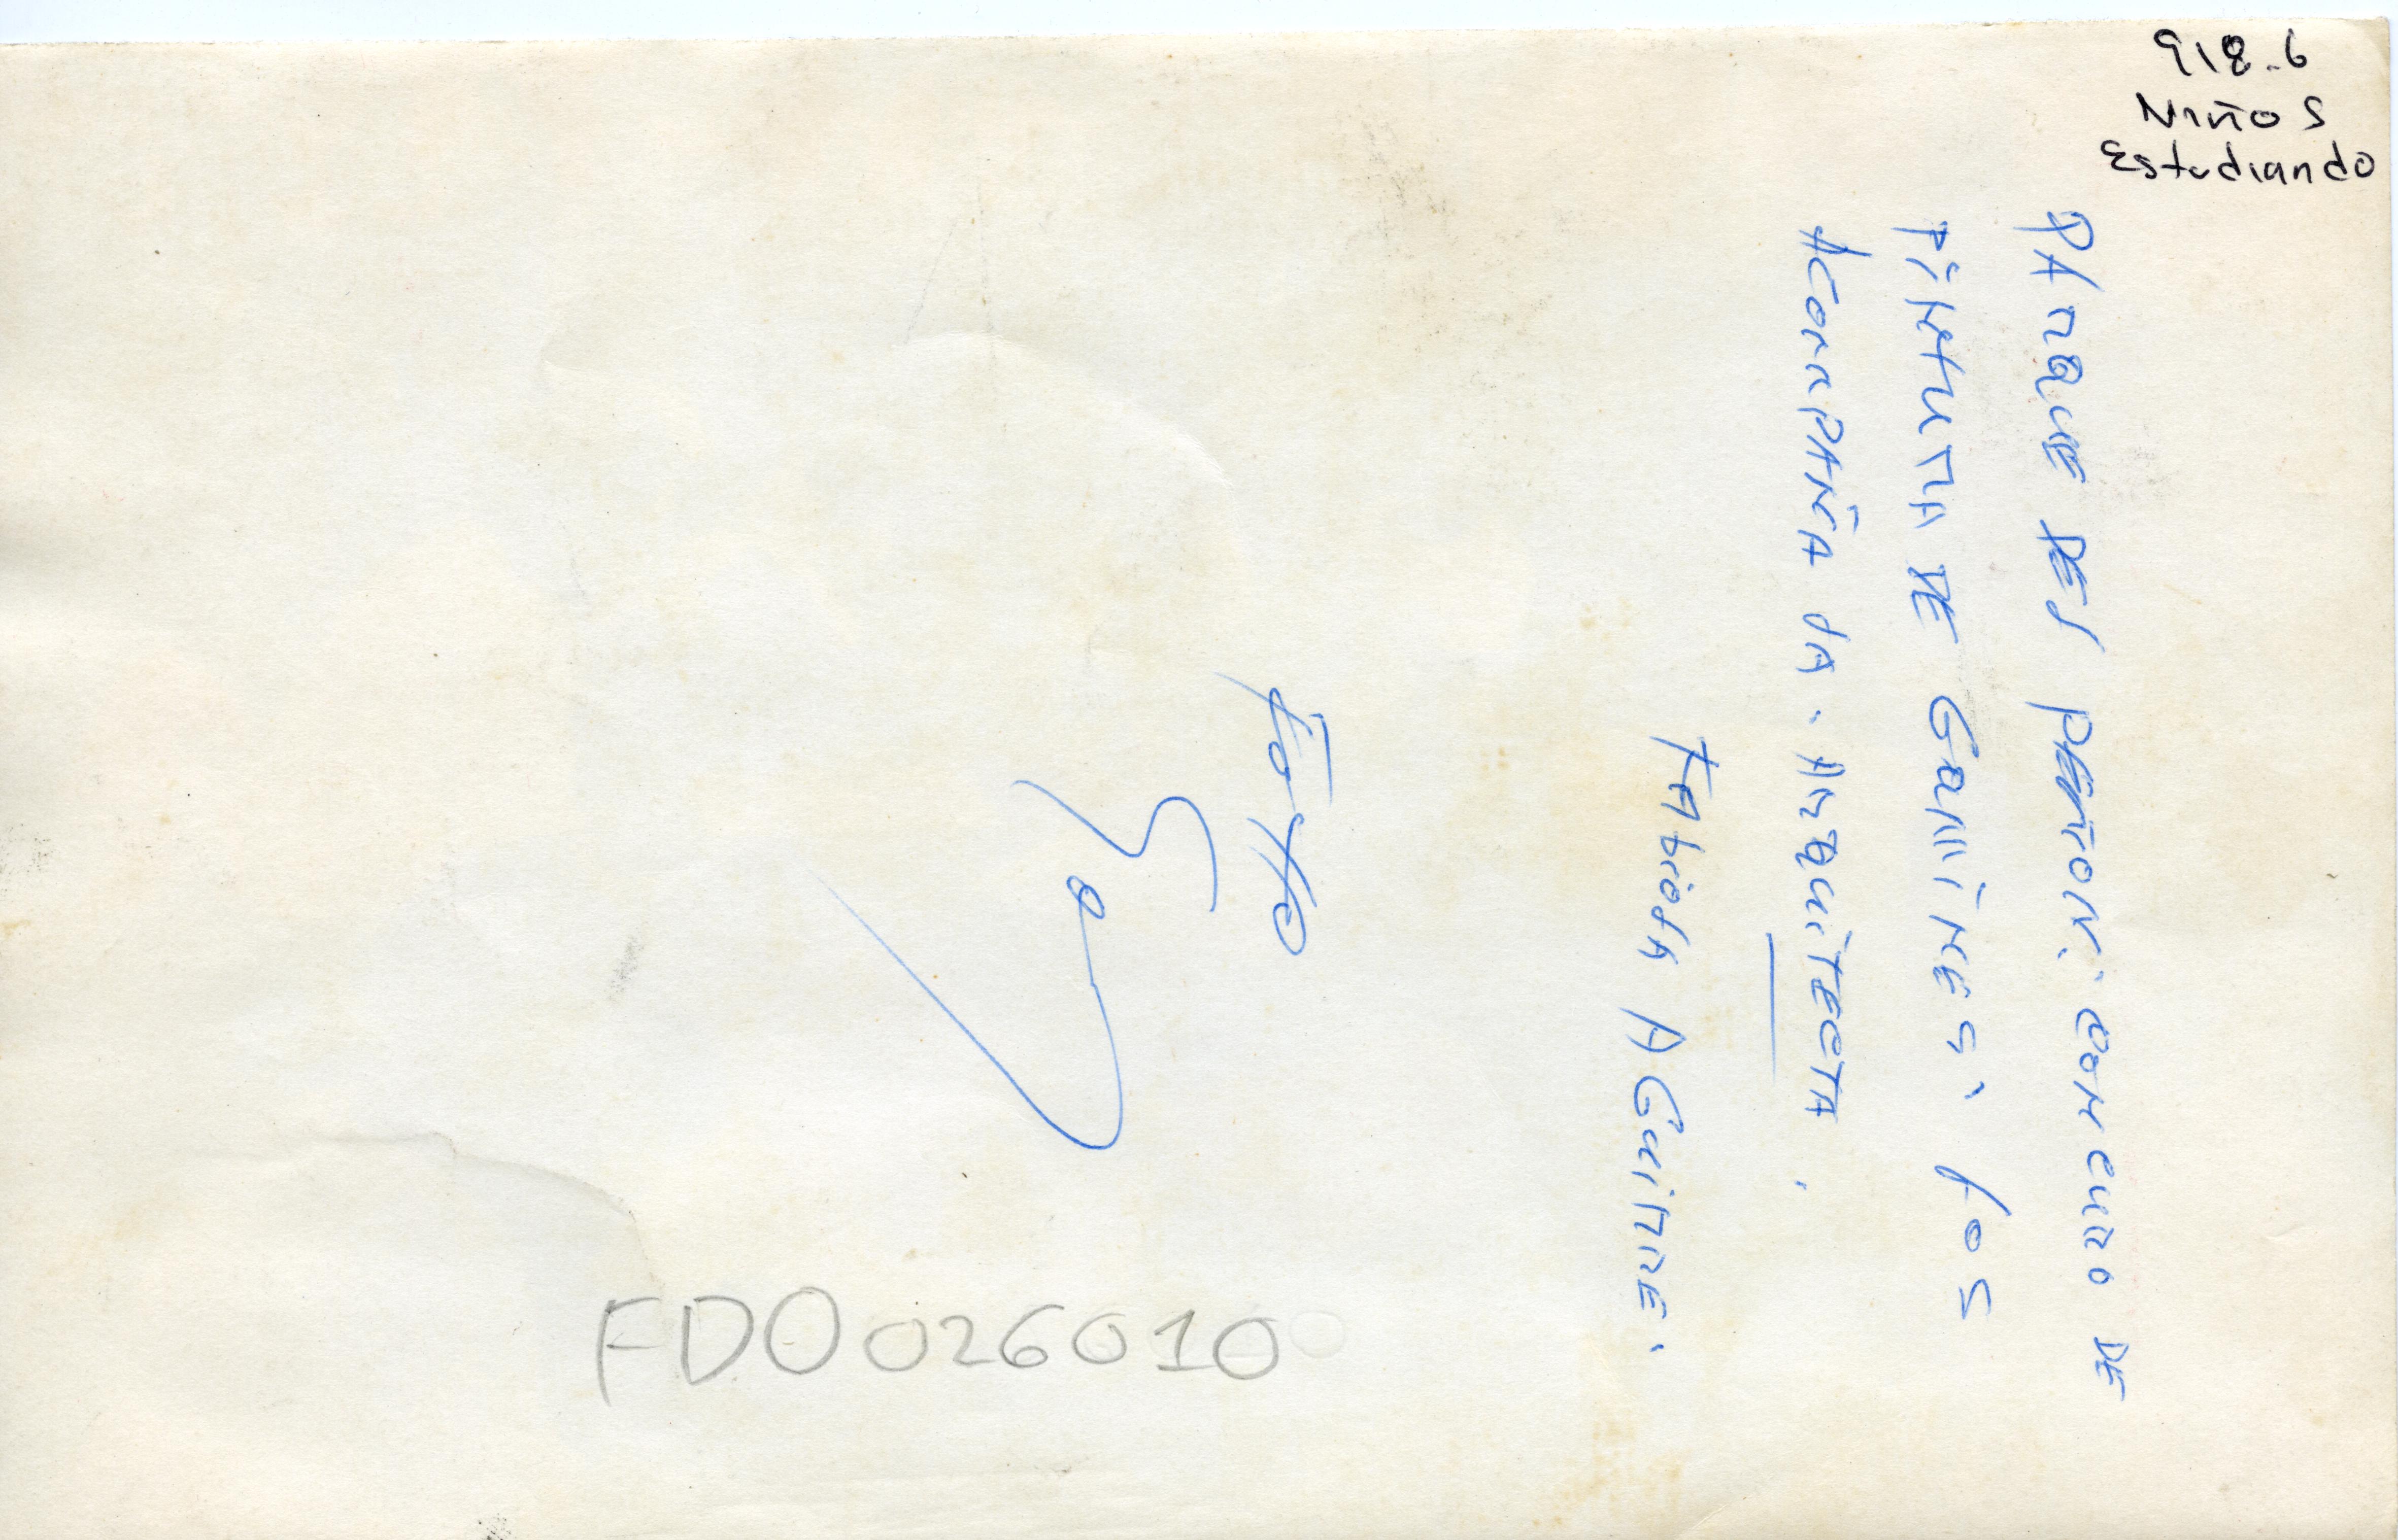 918-6
Niños
Estudiando
PARQUE DEL PEÑON. CONCURSO DE
PINTURA DE GAMINES. LOS
ACOMPAÑA LA. ARQUITECTA.
FABIOLA AGUIRRE.
FOTO
FDO026010